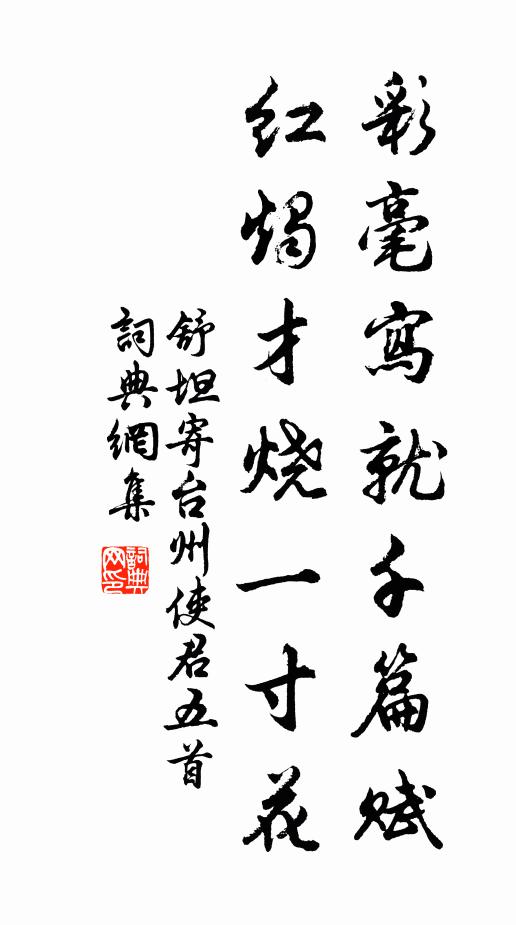 彩毫寫就千篇賦
红燭才烧一寸花
舒坦寄台州使君五首
詞典網集
詞典网印